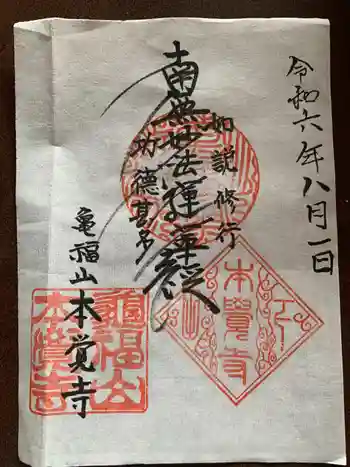 令和六年八月一日
如説修行
南無妙法蓮華経
功徳甚多
亀福山
本覚寺
本覺寺
龜福山
本覺寺